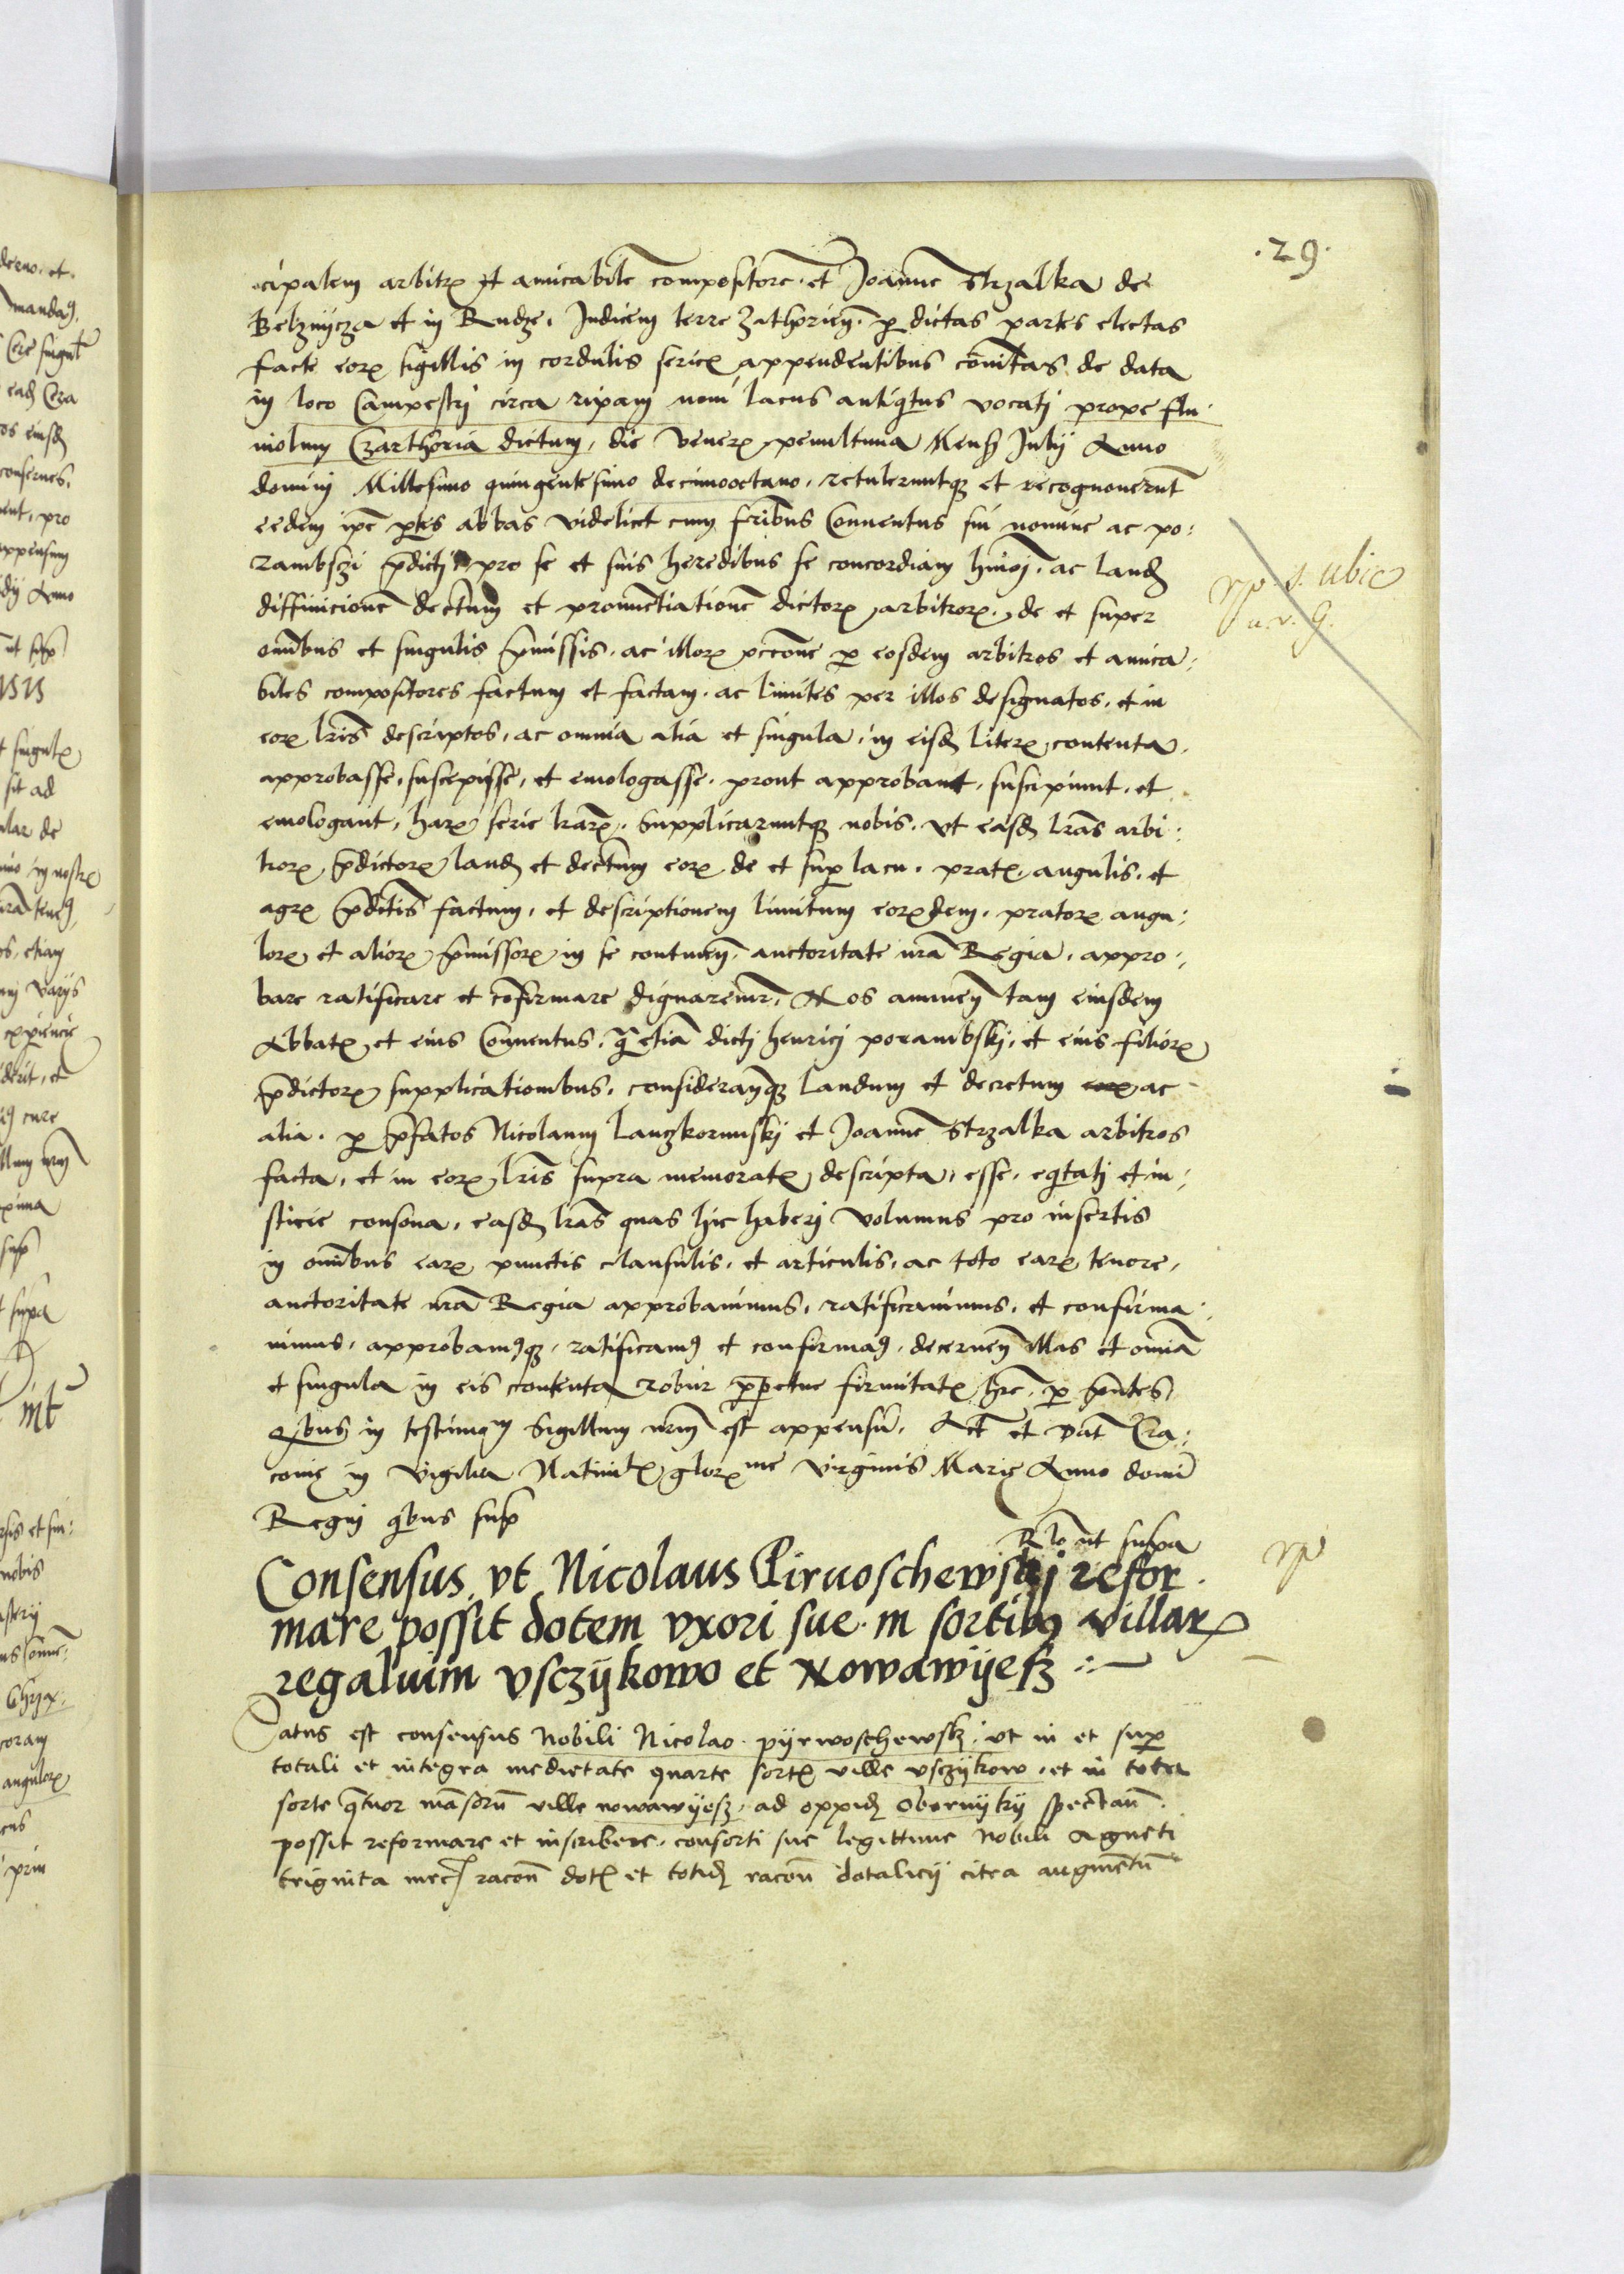 .29.
cipalem arbitrū et amicabilē compositorē et Joannē Strzalka de
Belznycza et in Rudze. Judicem terre Zathorień. per dictas partes electas
facte eorum sigillis in cordulis sericis appendentibus com̄itas de data
in loco Campestrj circa ripam novi lacus antiqitus vocatj prope flu
violum Czarthoria dictum, die Veneris penultima Mensis Julij Anno
domini Millesimo quingentesimo decimooctavo, retuleruntque et recognoverūt
eedem ip̄e p̄tes abbas videlicet cum fr̄ibus Conventus sui nomine ac po:
rambszi p̄dictj pro se et suis heredibus se concordiam hm̄oj. ac laudū
diffinicionē dect̄um et pronunctiationē dictorum arbitrorum, de et super
om̄ibus et singulis p̄missis. ac illorum per eosdem arbitros et amica:
biles compositores factum et factam. ac limites per illos designatos, et in
eorum lr̄is descriptos, ac omnia alia et singula, in eisdem literis contenta,
approbasse, suscepisse, et emologasse. prout approbant, suscipiunt, et
emologant, harum serie lr̄arum. Supplicaruntque nobis. vt easdem lr̄as arbi:
trorum p̄dictorum laudū et dect̄um eorum de et super lacu. pratis, angulis, et
agris p̄dictis factum, et descriptionem limitum eorundem, pratorum angu:
lorum et aliorum p̄missorum in se contineñ. auctoritate nr̄a Regia, appro:
bare ratificare et cōfirmare dignaremur. Nos annueñ tam eiusdem
Abbatis et eius Conventus, q̄ etiā dictj henricj porambskj, et eius filiorum
p̄dictorum supplicationibus. considerañque laudum et decretum ac
alia. per p̄fatos Nicolaum Lanczkorunskj et Joannē Strzalka arbitros
facta, et in eorum lr̄is supra memoratis descripta, esse, eqitatj et iu:
sticie consona, easdem lr̄as quas hic haberj volumus pro insertis
in om̄ibus earum punctis clausulis, et articulis, ac toto earum tenore,
auctoritate nr̄a Regia approbavimus, ratificavimus, et confirma
vimus, approbamusque, ratificamus et confirmamus, decerneñ illas et om̄ia
et singula in eis contenta robur perpetue firmitatis hr̄e. per p̄ntes
Qibus in testimonium Sigillum nr̄m est appensū. Act̄ et Dat̄ Cra:
covie in Vigilia Nativitatis gloriosissime Virginis Marie Anno domī
Regnj qibus sup̄
Rl̄o ut supra
Consensus, vt Nicolaus Pirvoschewskj refor
mare possit dotem vxori sue in sortibus villarum
regalium vsczijkowo et Nowawijesz
Datus est consensus Nobili Nicolao pijrwoschewski vt in et super
totali et integra medietate quarte sortis ville vsczijkow, et in tota
sorte qatuor mansorū ville nowawijesz, ad oppidū Obornijkij spectan̄.
possit reformare et inscribere. consorti sue legittime Nobili Agneti
triginta mrcas racōn̄ dotis et totidem racōn̄ dotalicij citra augmētū